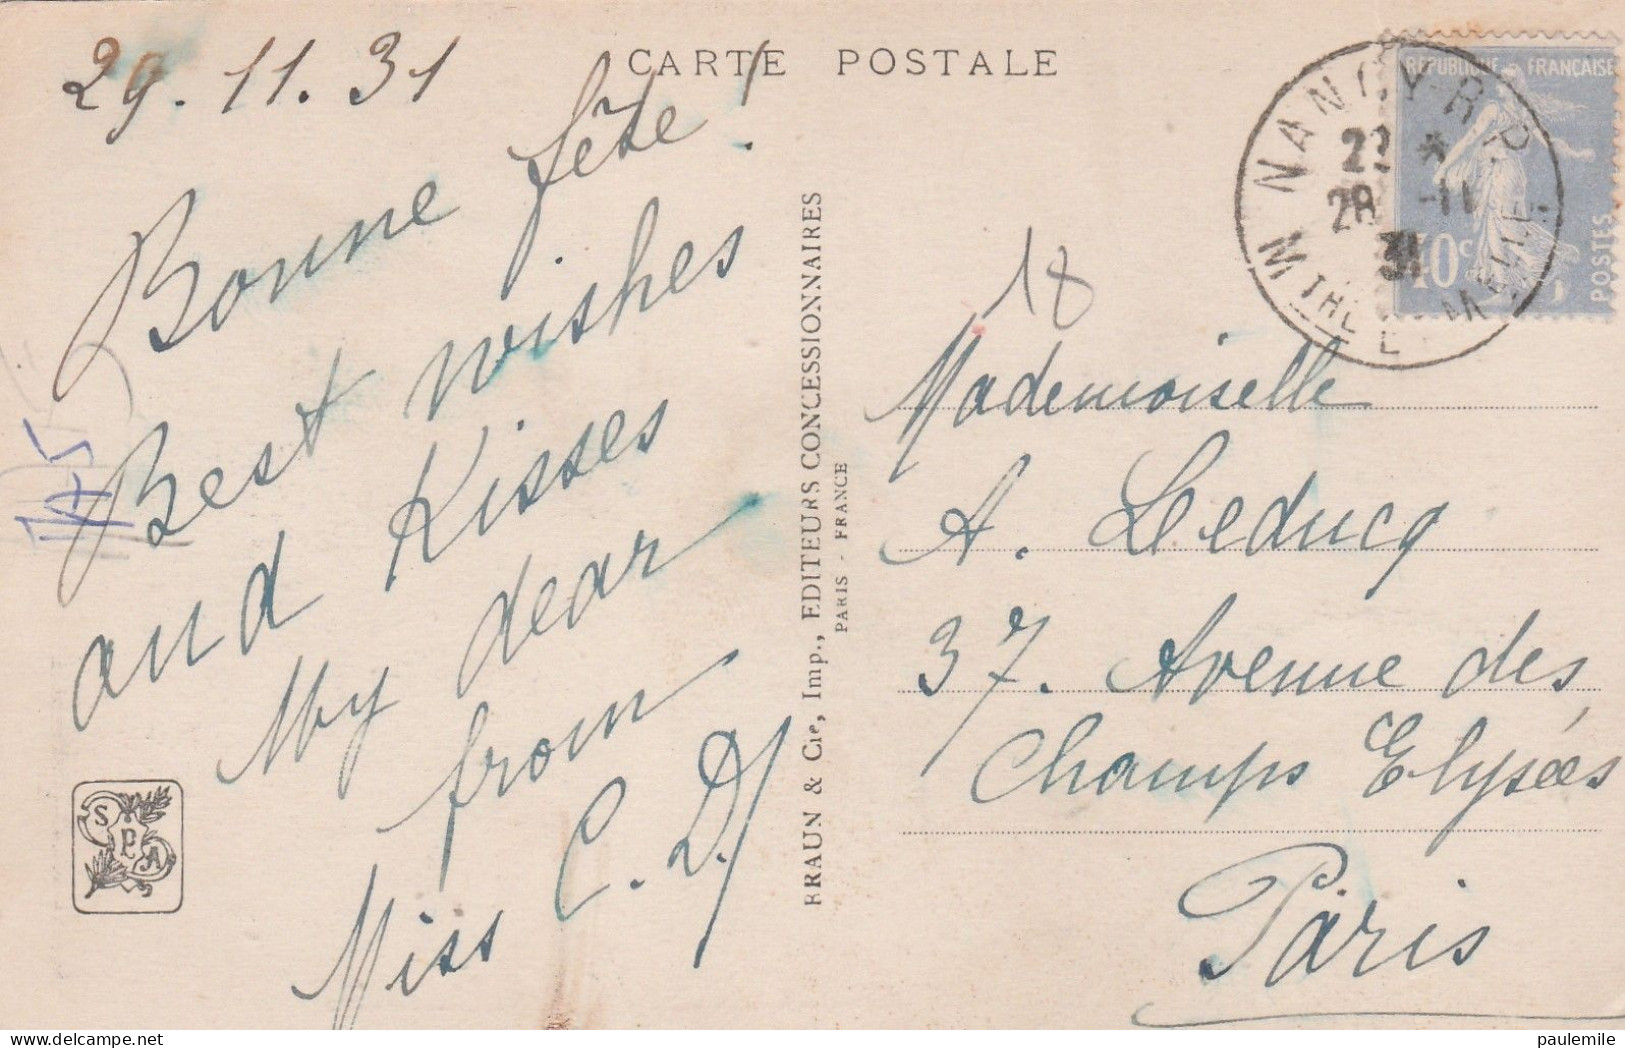 CARTE POSTALE
29.11.31
Bonne fête!
Best wishes
and Kisses
My dear
from
Miss C. D.
SPA
BRAUN & Cie, Imp., EDITEURS CONCESSIONNAIRES
PARIS - FRANCE
18
Mademoiselle
A. Leducq
37. Avenue des
Champs Elysées
Paris
REPUBLIQUE FRANÇAISE
40c
POSTES
NANCY R.P.
28 -11
31
MTHE ET MELLE
paulemile